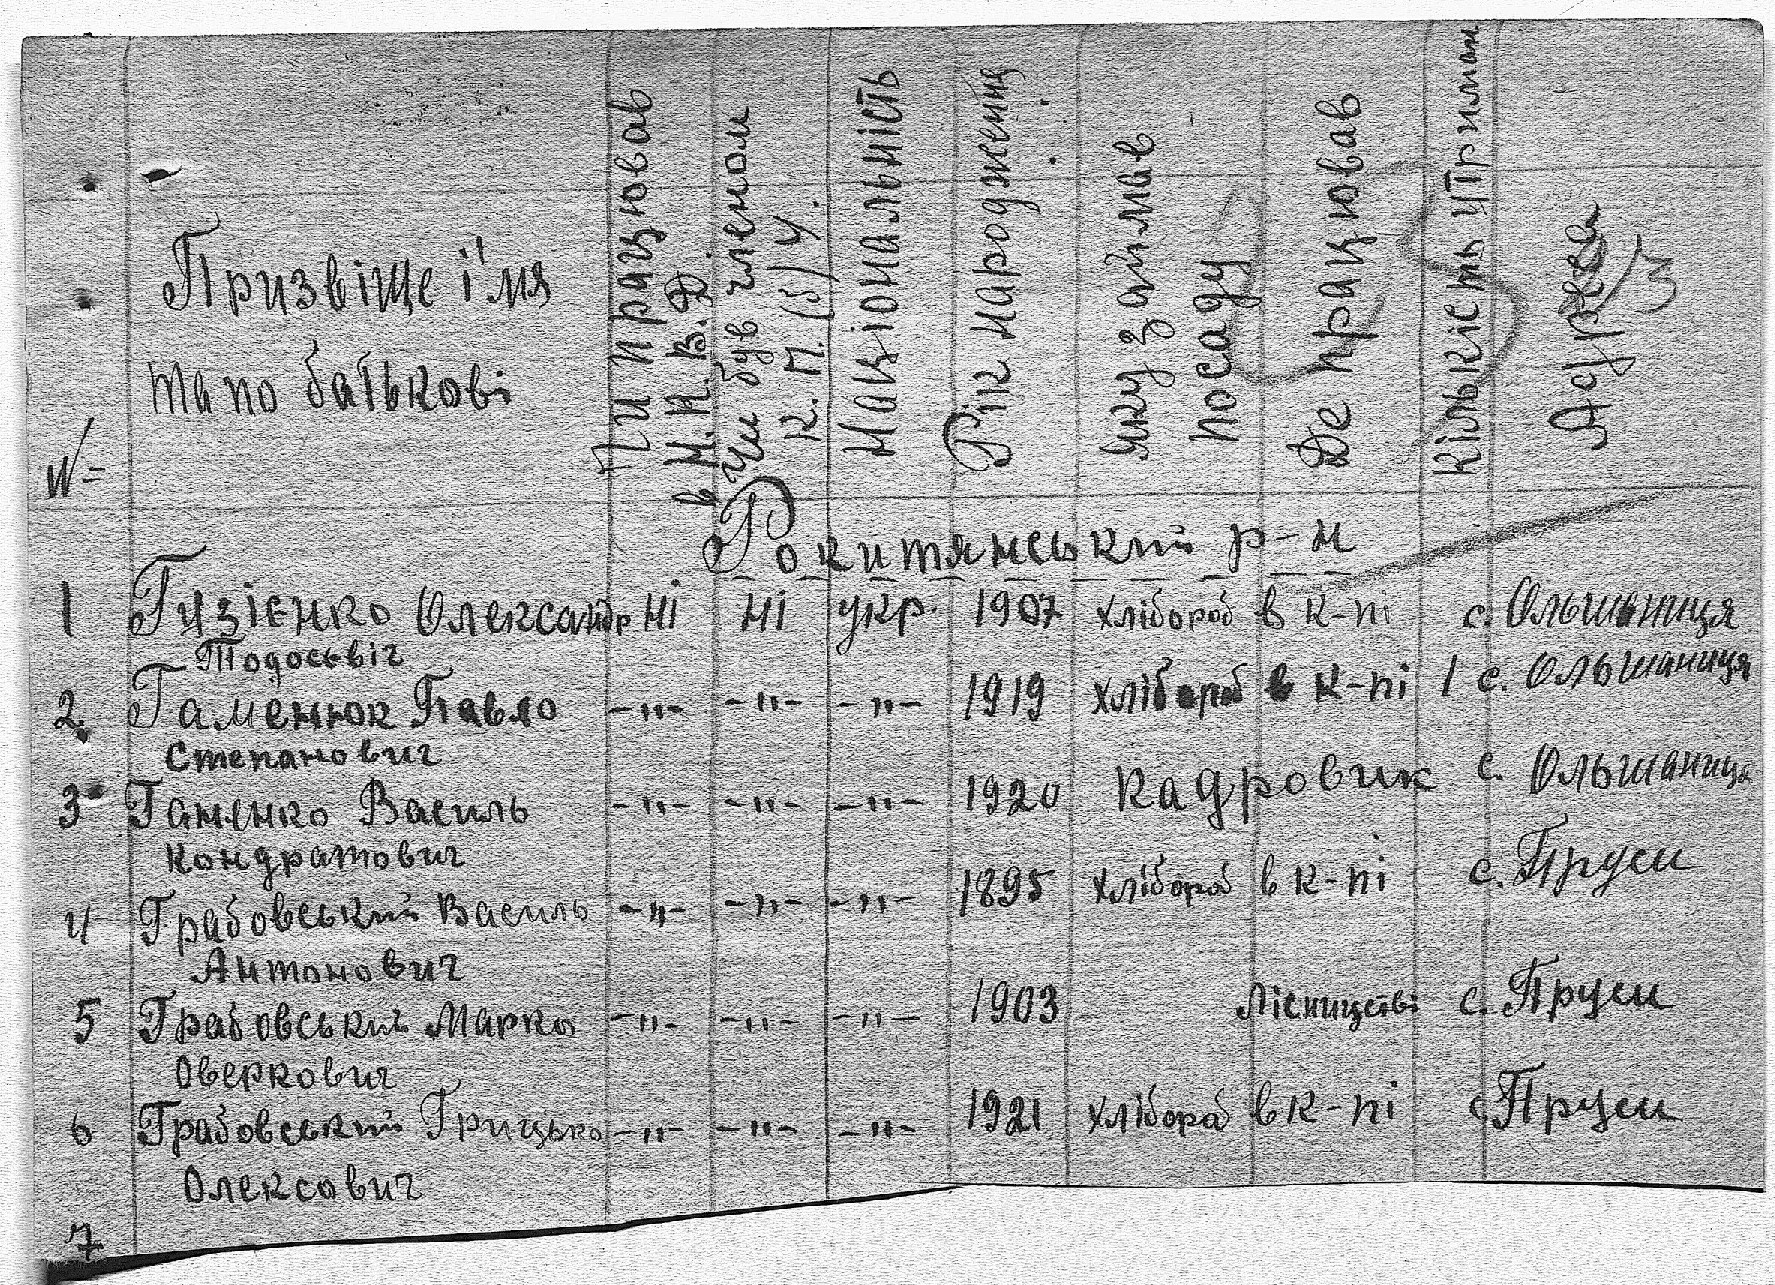 №
Призвіще ім'я
та по батькові
Чи працював
в М.К.В.Д.
Чи був членом
К.П.(б)У.
Національність
Рік народження
Яку займав
посаду
Де працював
Кількість утриман
Адреса
3
Рокитянський р-н
1 Гузієнко Олександр ні ні укр. 1907 хлібороб в к-пі с. Ольшаниця
Тодосьвіч
2. Гаменюк Павло -"- -"- -"- 1919 хлібороб в к-пі 1 с. Ольшаниця
Степанович
3 Ганенко Василь -"- -"- -"- 1920 кадровик с. Ольшаниця
Кондратович
4 Грабовський Василь -"- -"- -"- 1895 хлібороб в к-пі с. Пруси
Антонович
5 Грабовський Марко -"- -"- -"- 1903 Лісництві с. Пруси
Оверкович
6 Грабовський Грицько -"- -"- -"- 1921 хлібороб в к-пі с. Пруси
Олексович
7